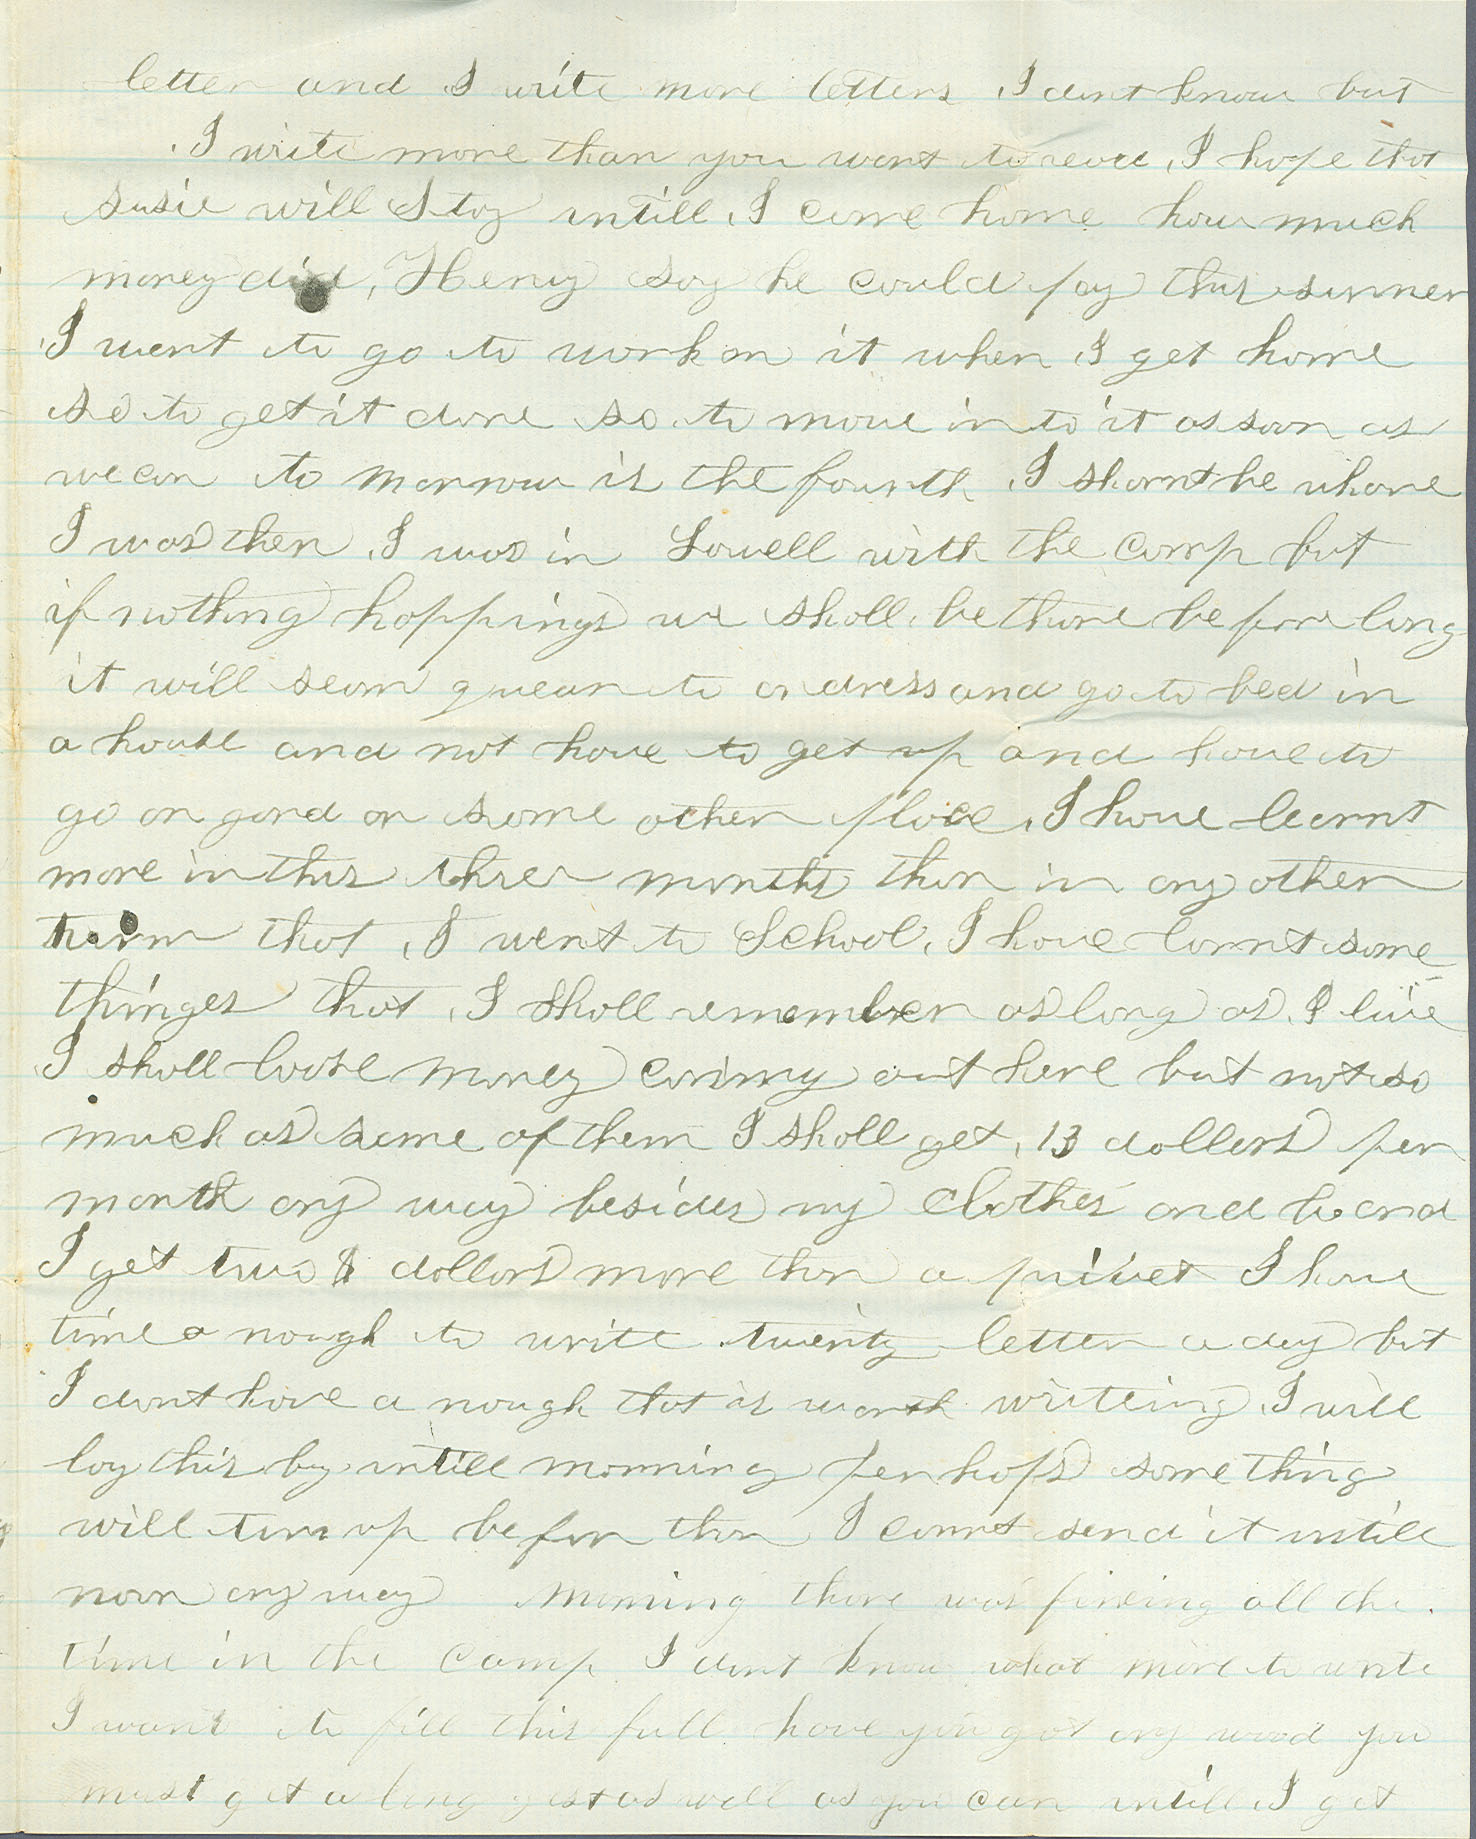 letter and I write more letters I dont know but
I write more than you want to read, I hope that
Susie will Stay untill I come home how much
money did, Henry say he could pay this summer
I want to go to work on it when I get home
so to get it done so to move in to it as soon as
we can to morrow is the fourth I shant be whare
I was then I was in Lowell with the comp but
if nothing happings we shall be thare before long
it will seam quear to ondress and go to bed in
a house and not have to get up and have to
go on gard or some other place, I have learnt
more in this three months than in any other
tearm that I went to School, I have larnt some
thinges that I shall remember as long as I live
I shall loose money coming out here but not so
much as some of them I shall get 13 dollars per
month any way besides my Clothes and board
I get two dollars more than a privet I have
time a nough to write twenty letter a day but
I dont have a nough that is worth writteing I will
lay this by untill morning perhaps some thing
will turn up befor than I cannt send it untill
noon any way Morning thare was fireing all the
time in the camp I dont know what more to write
I want to fill this full have you got any wood you
must get a long gest as well as you can untill I get